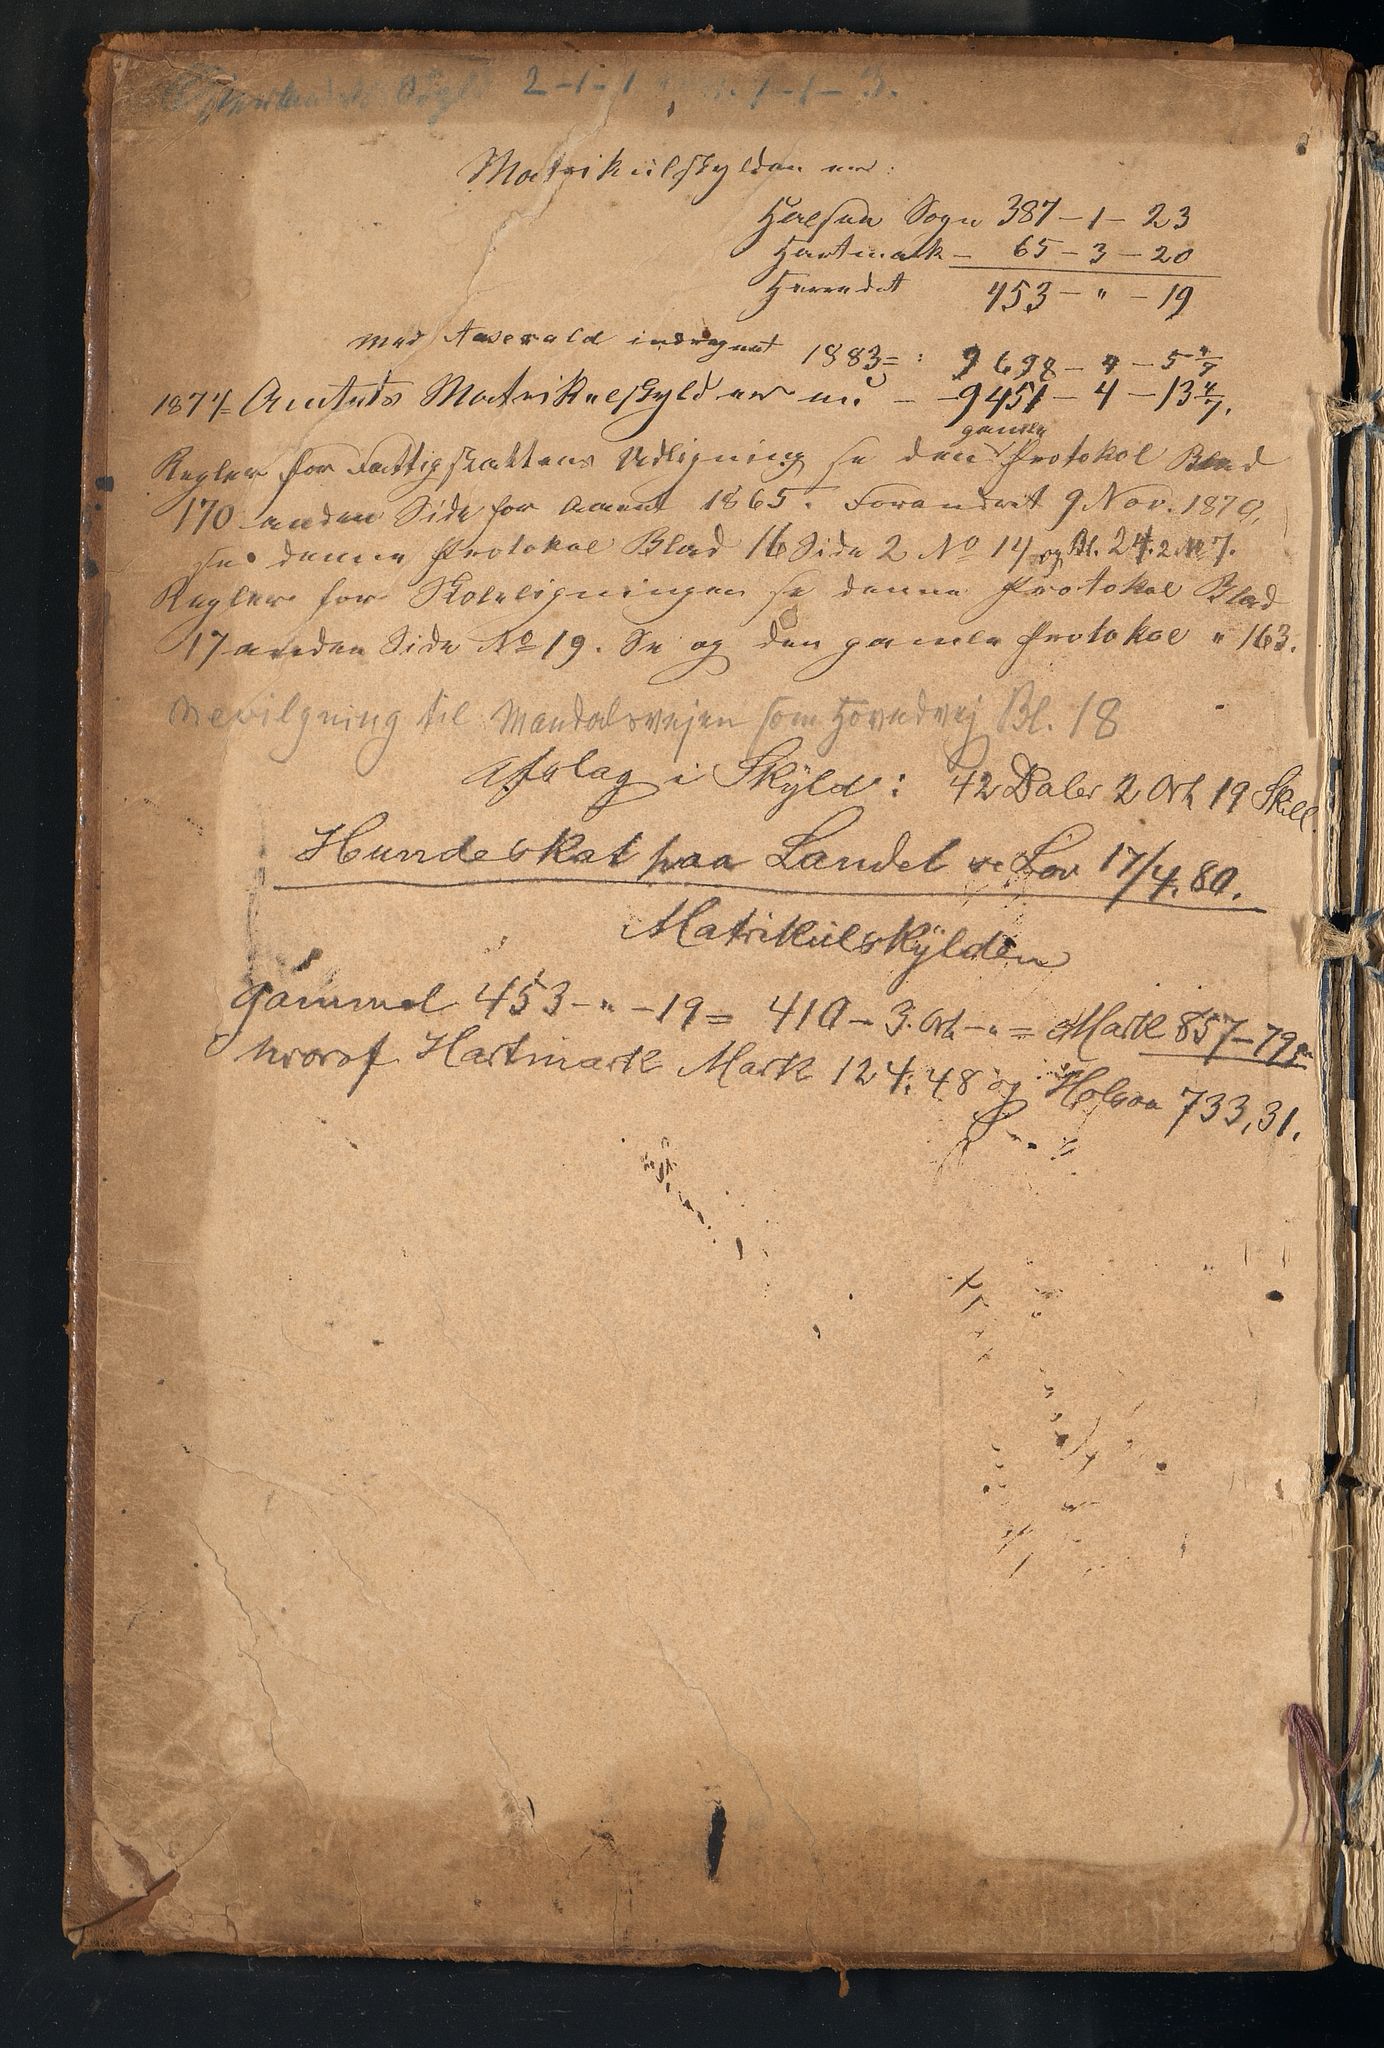 2-1-1 1-1-3.
Matrikulskylden er:
Halsaa Sogn 387-1-23
Hartmark - 65-3-20
Herredet 453-"-19
med Aaserald indregnet 1883=: 9698-4-5 4/7
1874= Amtets Matrikelskyld er nu - -9451-4-13 4/7.
gamle
Regler for Fattigskattens Udligning se den Protokol Blad
170 anden Side for Aaret 1865. Forandret 9 Nov. 1879,
se denne Protokol Blad 16 Side 2 No 14 og Bl. 24. 2. № 7.
Regler for Skoleligningen se denne Protokol Blad
17 anden Side No 19. Se og den gamle Protokol " 163.
Bevilgning til Mandalsvejen som Hovedvej Bl. 18
Afslag i Skyld: 42 Daler 2 Ort 19 Skill.
Hundeskat paa Landet se Lov 17/4. 80.
Matrikulskylden
gammel 453-"-19= 410-3. Ort-"= Mark 857-79
hvoraf Hartmark Mark 124.48 og Halsaa 733,31.